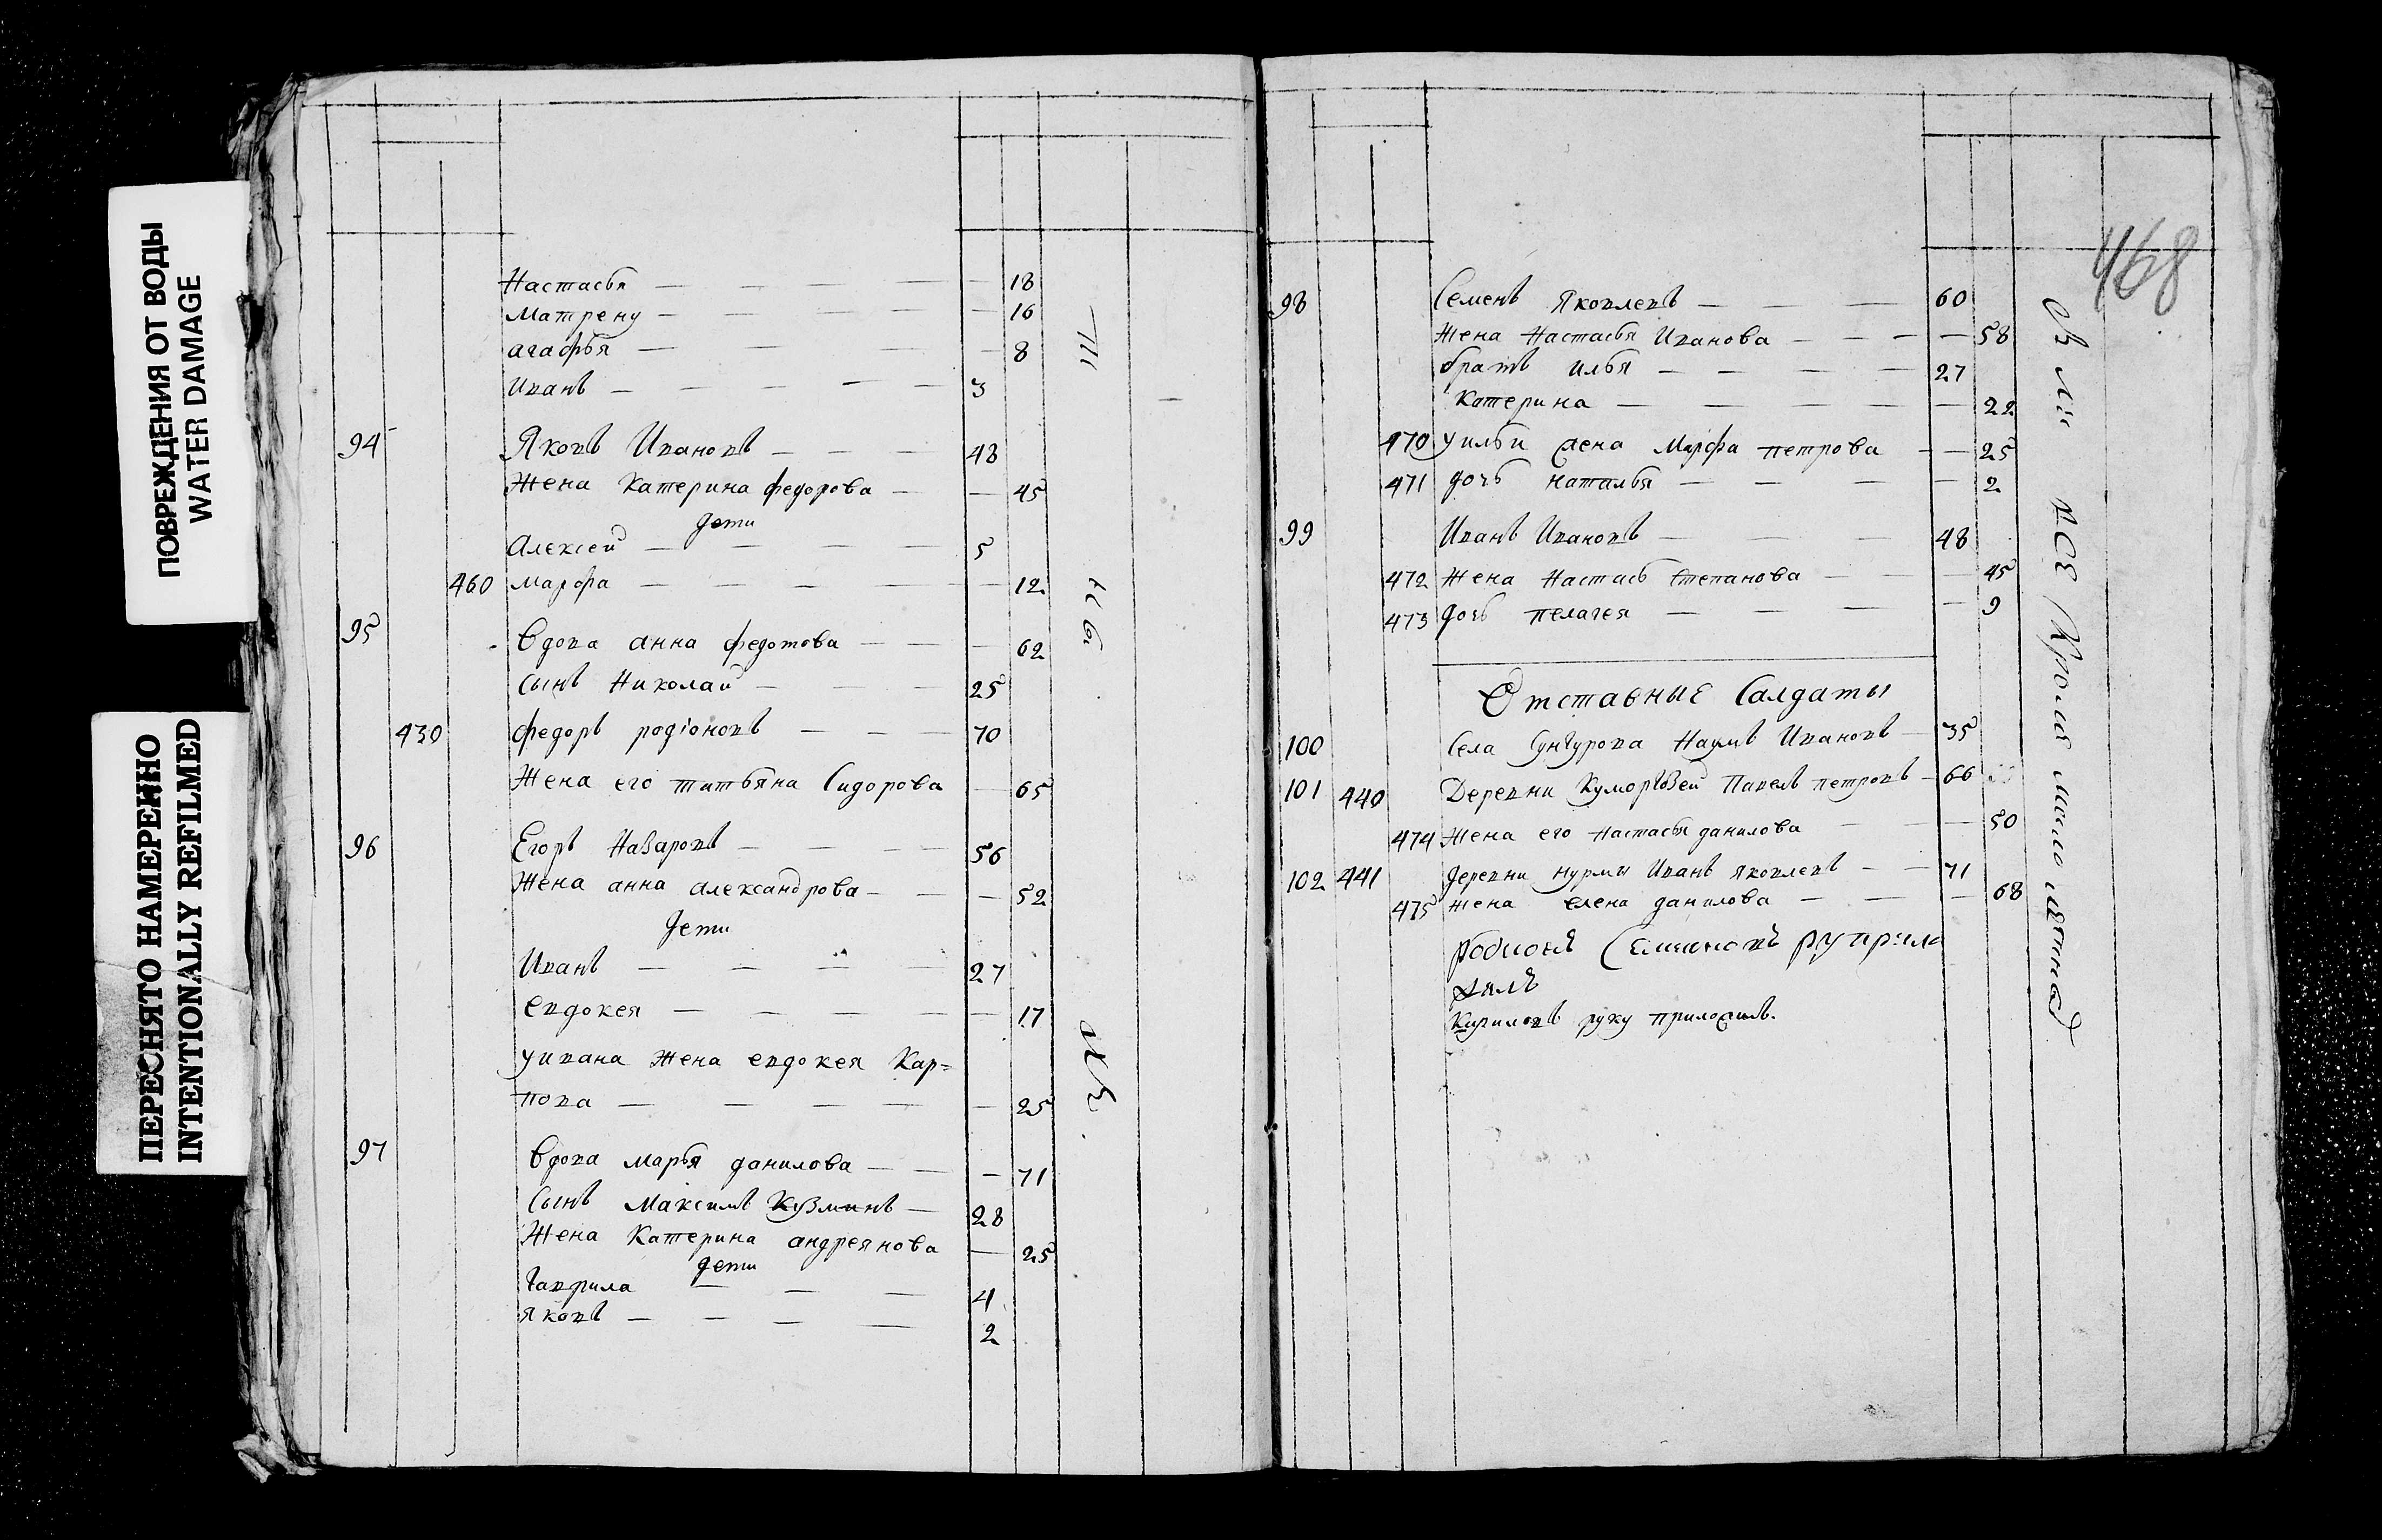 ПОВРЕЖДЕНИЯ ОТ ВОДЫ
WATER DAMAGE
ПЕРЕСНЯТО НАМЕРЕННО
INTENTIONALLY REFILMED
Настасья — — — — — 18
Матрену — — — — — 16
агафья — — — — 8
Иванъ — — — — — 3
94 Яковъ Ивановъ — — — 48
Жена Катерина федорова — — 45
дети
Алексей — — — — 5
460 марфа — — — — — 12
95 Вдова анна федотова — — — 62
сынъ Николай — — — 25
430 федоръ родiоновъ — — — 70
Жена его татьяна Сидорова — 65
96 Егоръ Назаровъ — — — — 56
Жена анна александрова — — — 52
дети
Иванъ — — — — 27
евдокея — — — — — 17
у ивана жена евдокея Кар=
пова — — — — — 25
97 Вдова марья данилова — — — 71
Сынъ Максимъ Кузминъ — 28
Жена Катерина андреянова — 25
дети
гаврила — — — 4
яковъ — — — — 2
468
98 Семенъ Яковлевъ — — — 60
Жена Настасья Иванова — — — — 58
братъ илья — — — — 27
Катерина — — — — — 22
470 у ильи жена Марфа петрова — — 25
471 дочь наталья — — — — 2
99 Иванъ Ивановъ — — — 48
472 жена Настась степанова — — 45
473 дочь пелагея — — — — 9
Отставные Салдаты
100 Села Сунгурова Наумъ Ивановъ — 35
101 440 Деревни Павелъ петровъ — 66
474 жена его настасья данилова — — 50
102 441 деревни нурмы Иванъ яковлевъ — — 71
475 жена елена данилова — — — 68
родионъ Семионовъ ру прило
Кириловъ руку приложилъ.